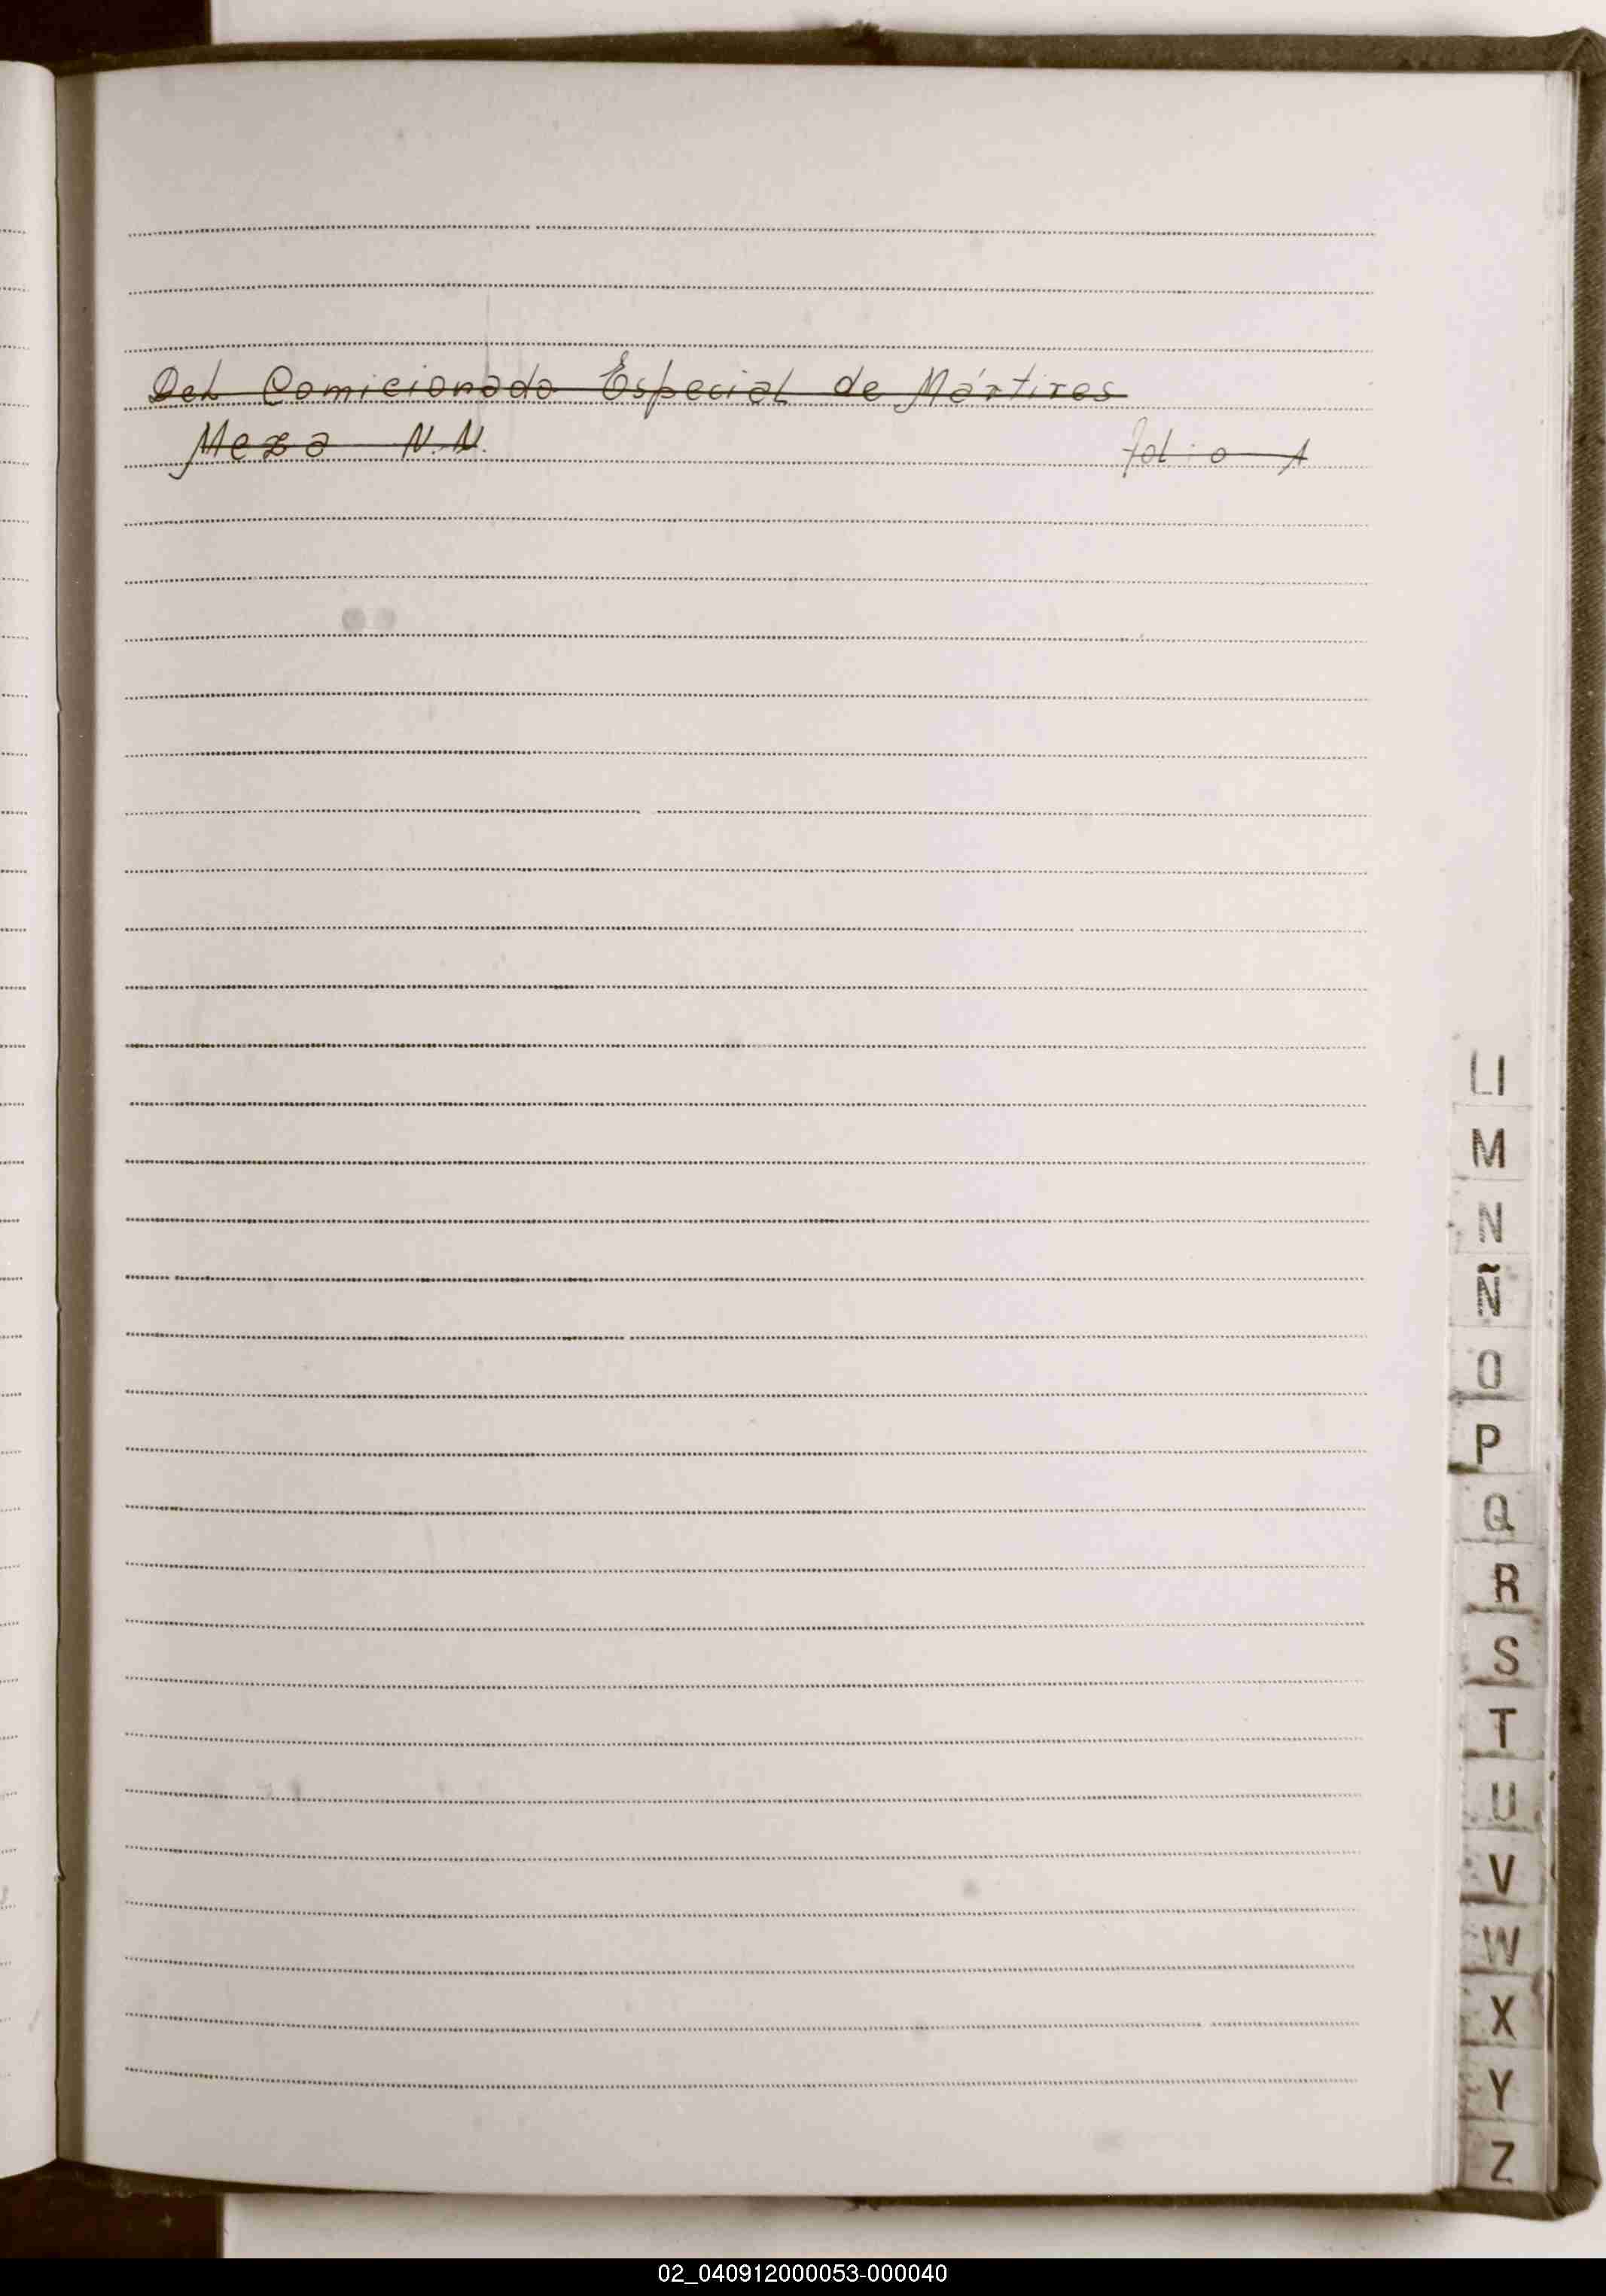 Del Comicionado Especial de Mártires
Meza N.N. folio 1
Ll
M
N
Ñ
O
P
Q
R
S
T
U
V
W
X
Y
Z
02_040912000053-000040